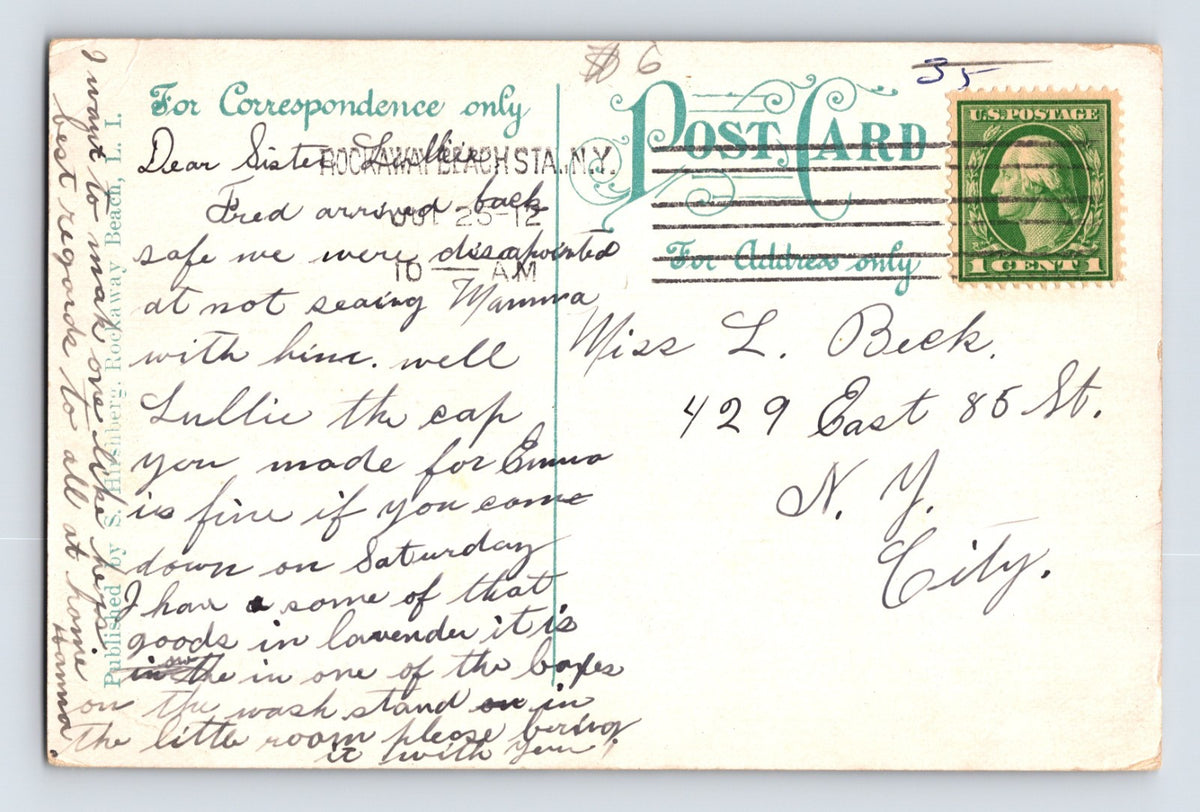 $ 6
35
For Correspondence only
POST CARD
For Address only
U.S. POSTAGE
1 CENT 1
ROCKAWAY BEACH STA. N.Y.
25-12
10 — AM
Dear Sister Lullie
Fred arrived back
safe we were disapointed
at not seaing Mamma
with him. well
Lullie the cap
you made for Emma
is fine if you come
down on Saturday
I have a some of that
goods in lavender it is
in the in one of the boxes
on the wash stand in
the little room please bering
it with you.
I want to mak one like hers
best regards to all at home
Hanna.
Miss L. Beck.
429 East 85 St.
N. Y.
City.
Published by S. Hirshberg, Rockaway Beach, L. I.